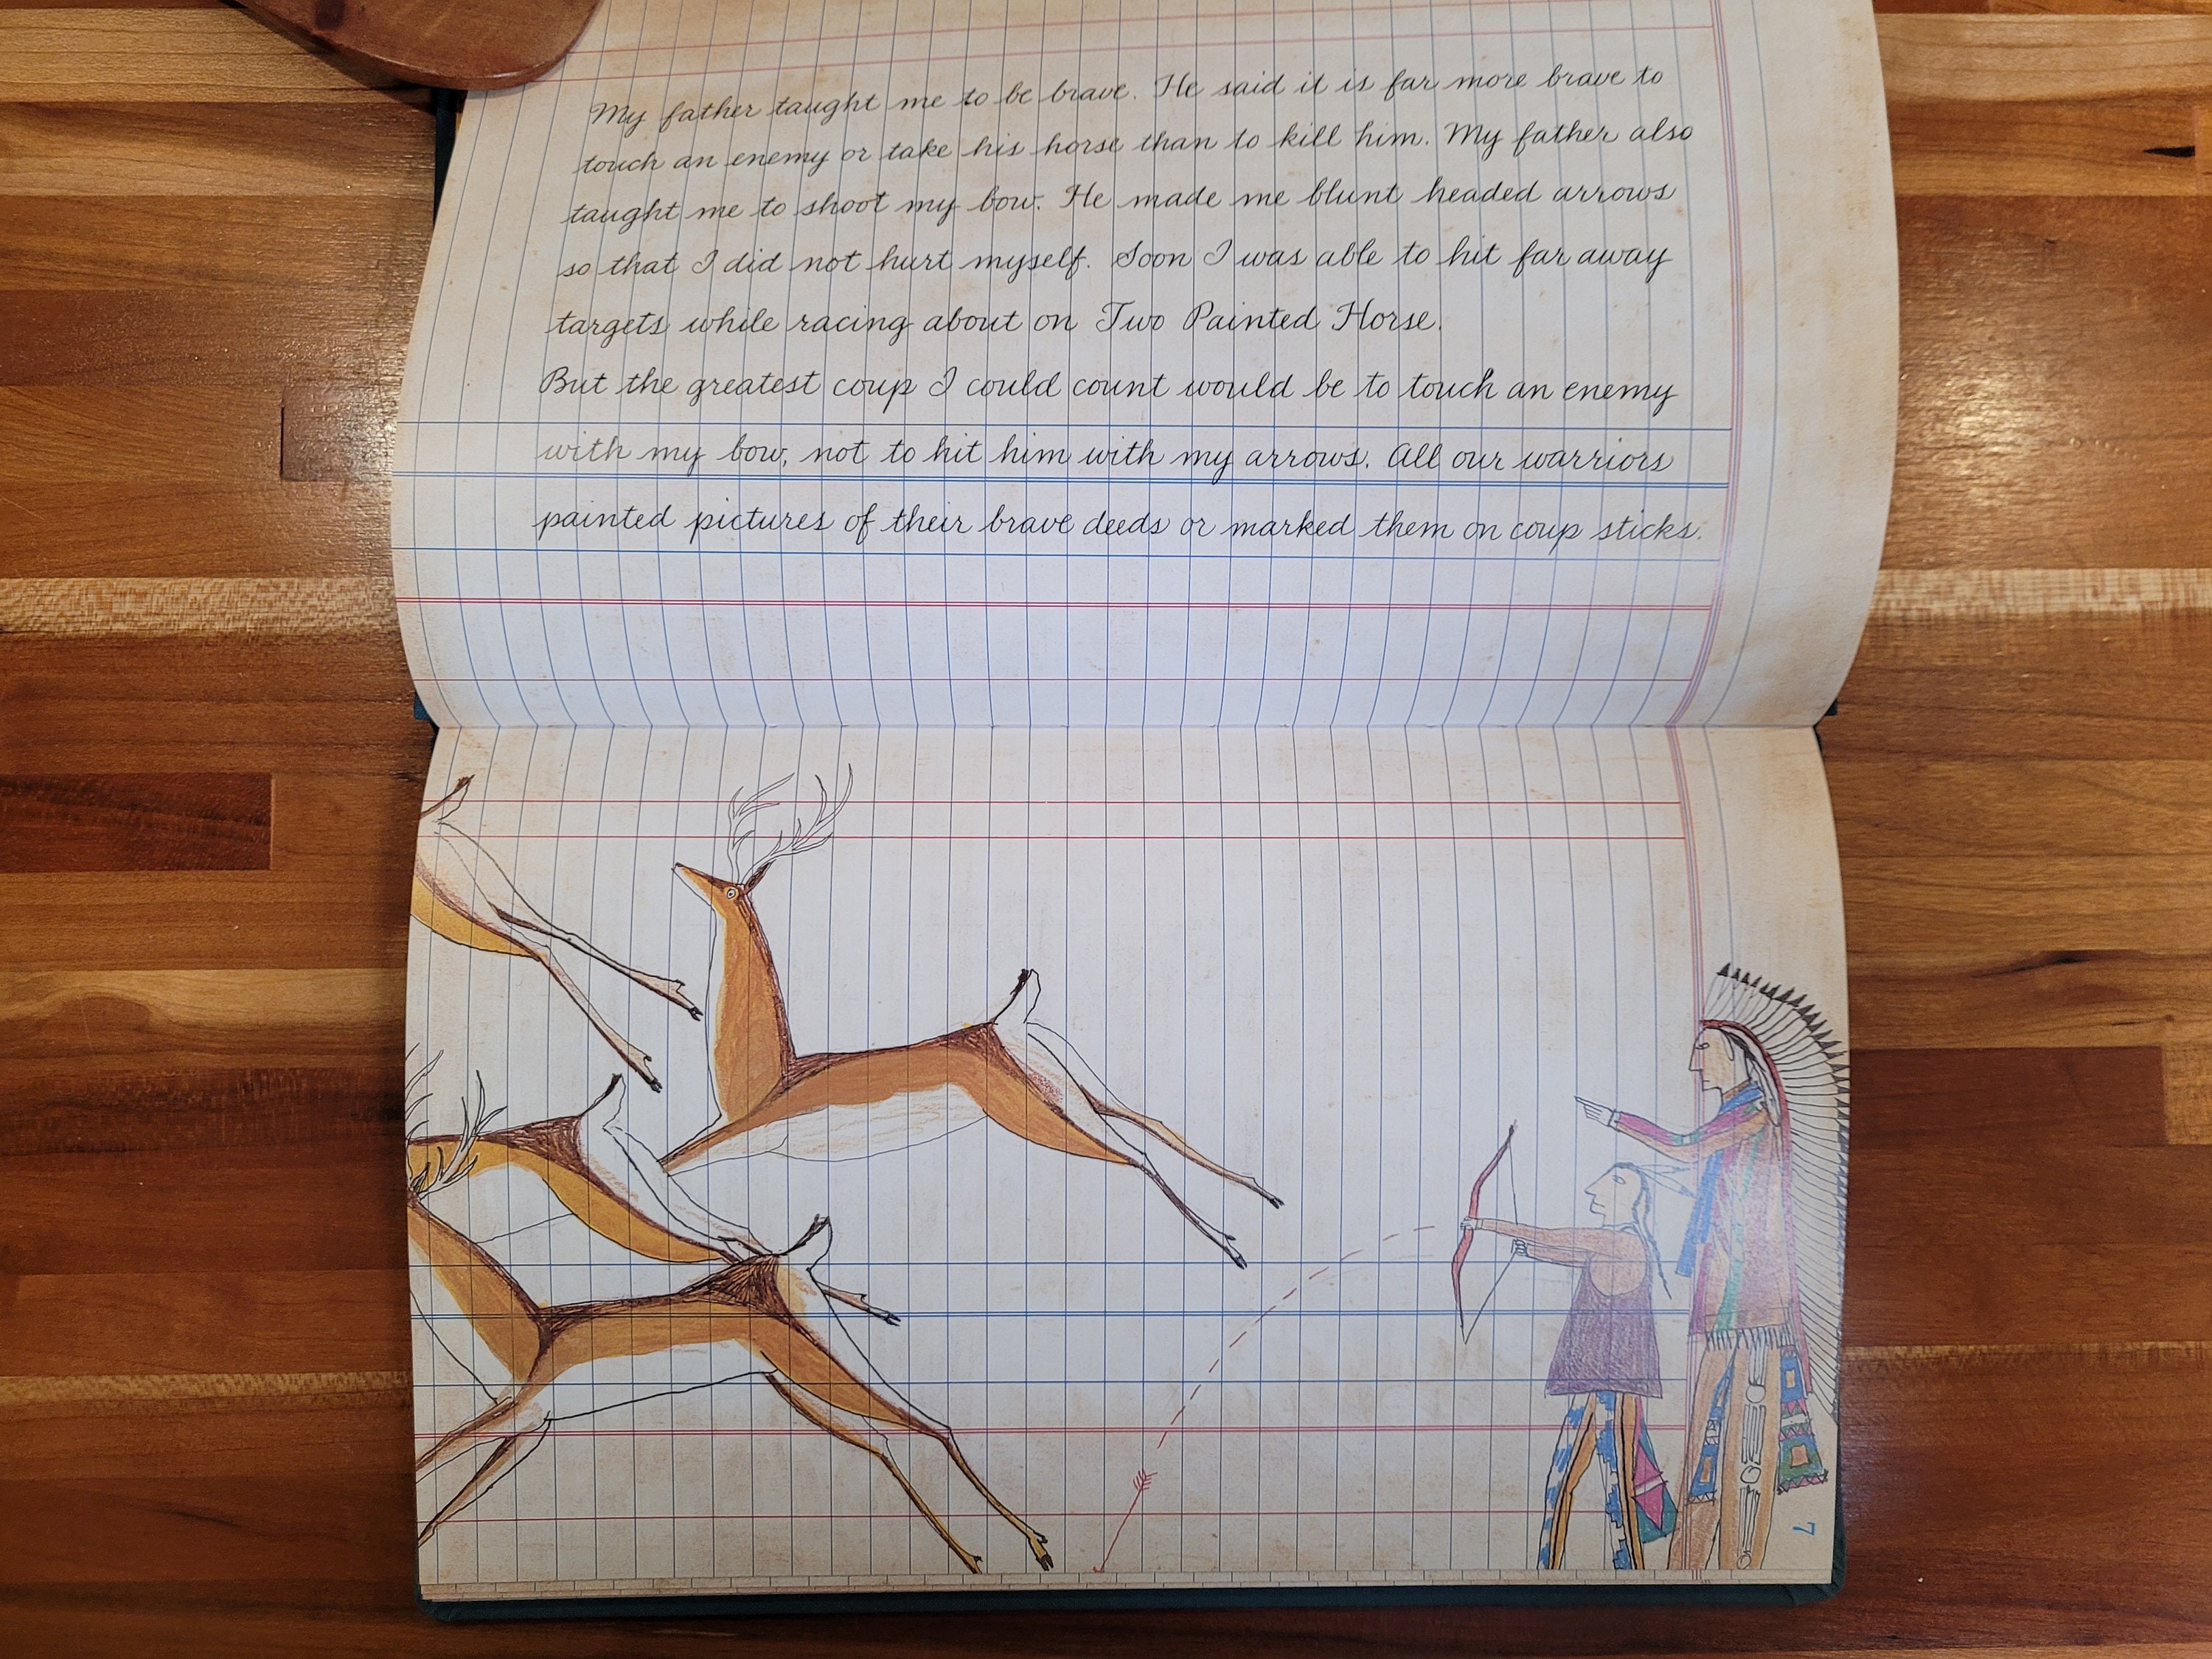 My father taught me to be brave. He said it is far more brave to
touch an enemy or take his horse than to kill him. My father also
taught me to shoot my bow. He made me blunt headed arrows
so that I did not hurt myself. Soon I was able to hit far away
targets while racing about on Two Painted Horse.
But the greatest coup I could count would be to touch an enemy
with my bow, not to hit him with my arrows. All our warriors
painted pictures of their brave deeds or marked them on coup sticks.
7